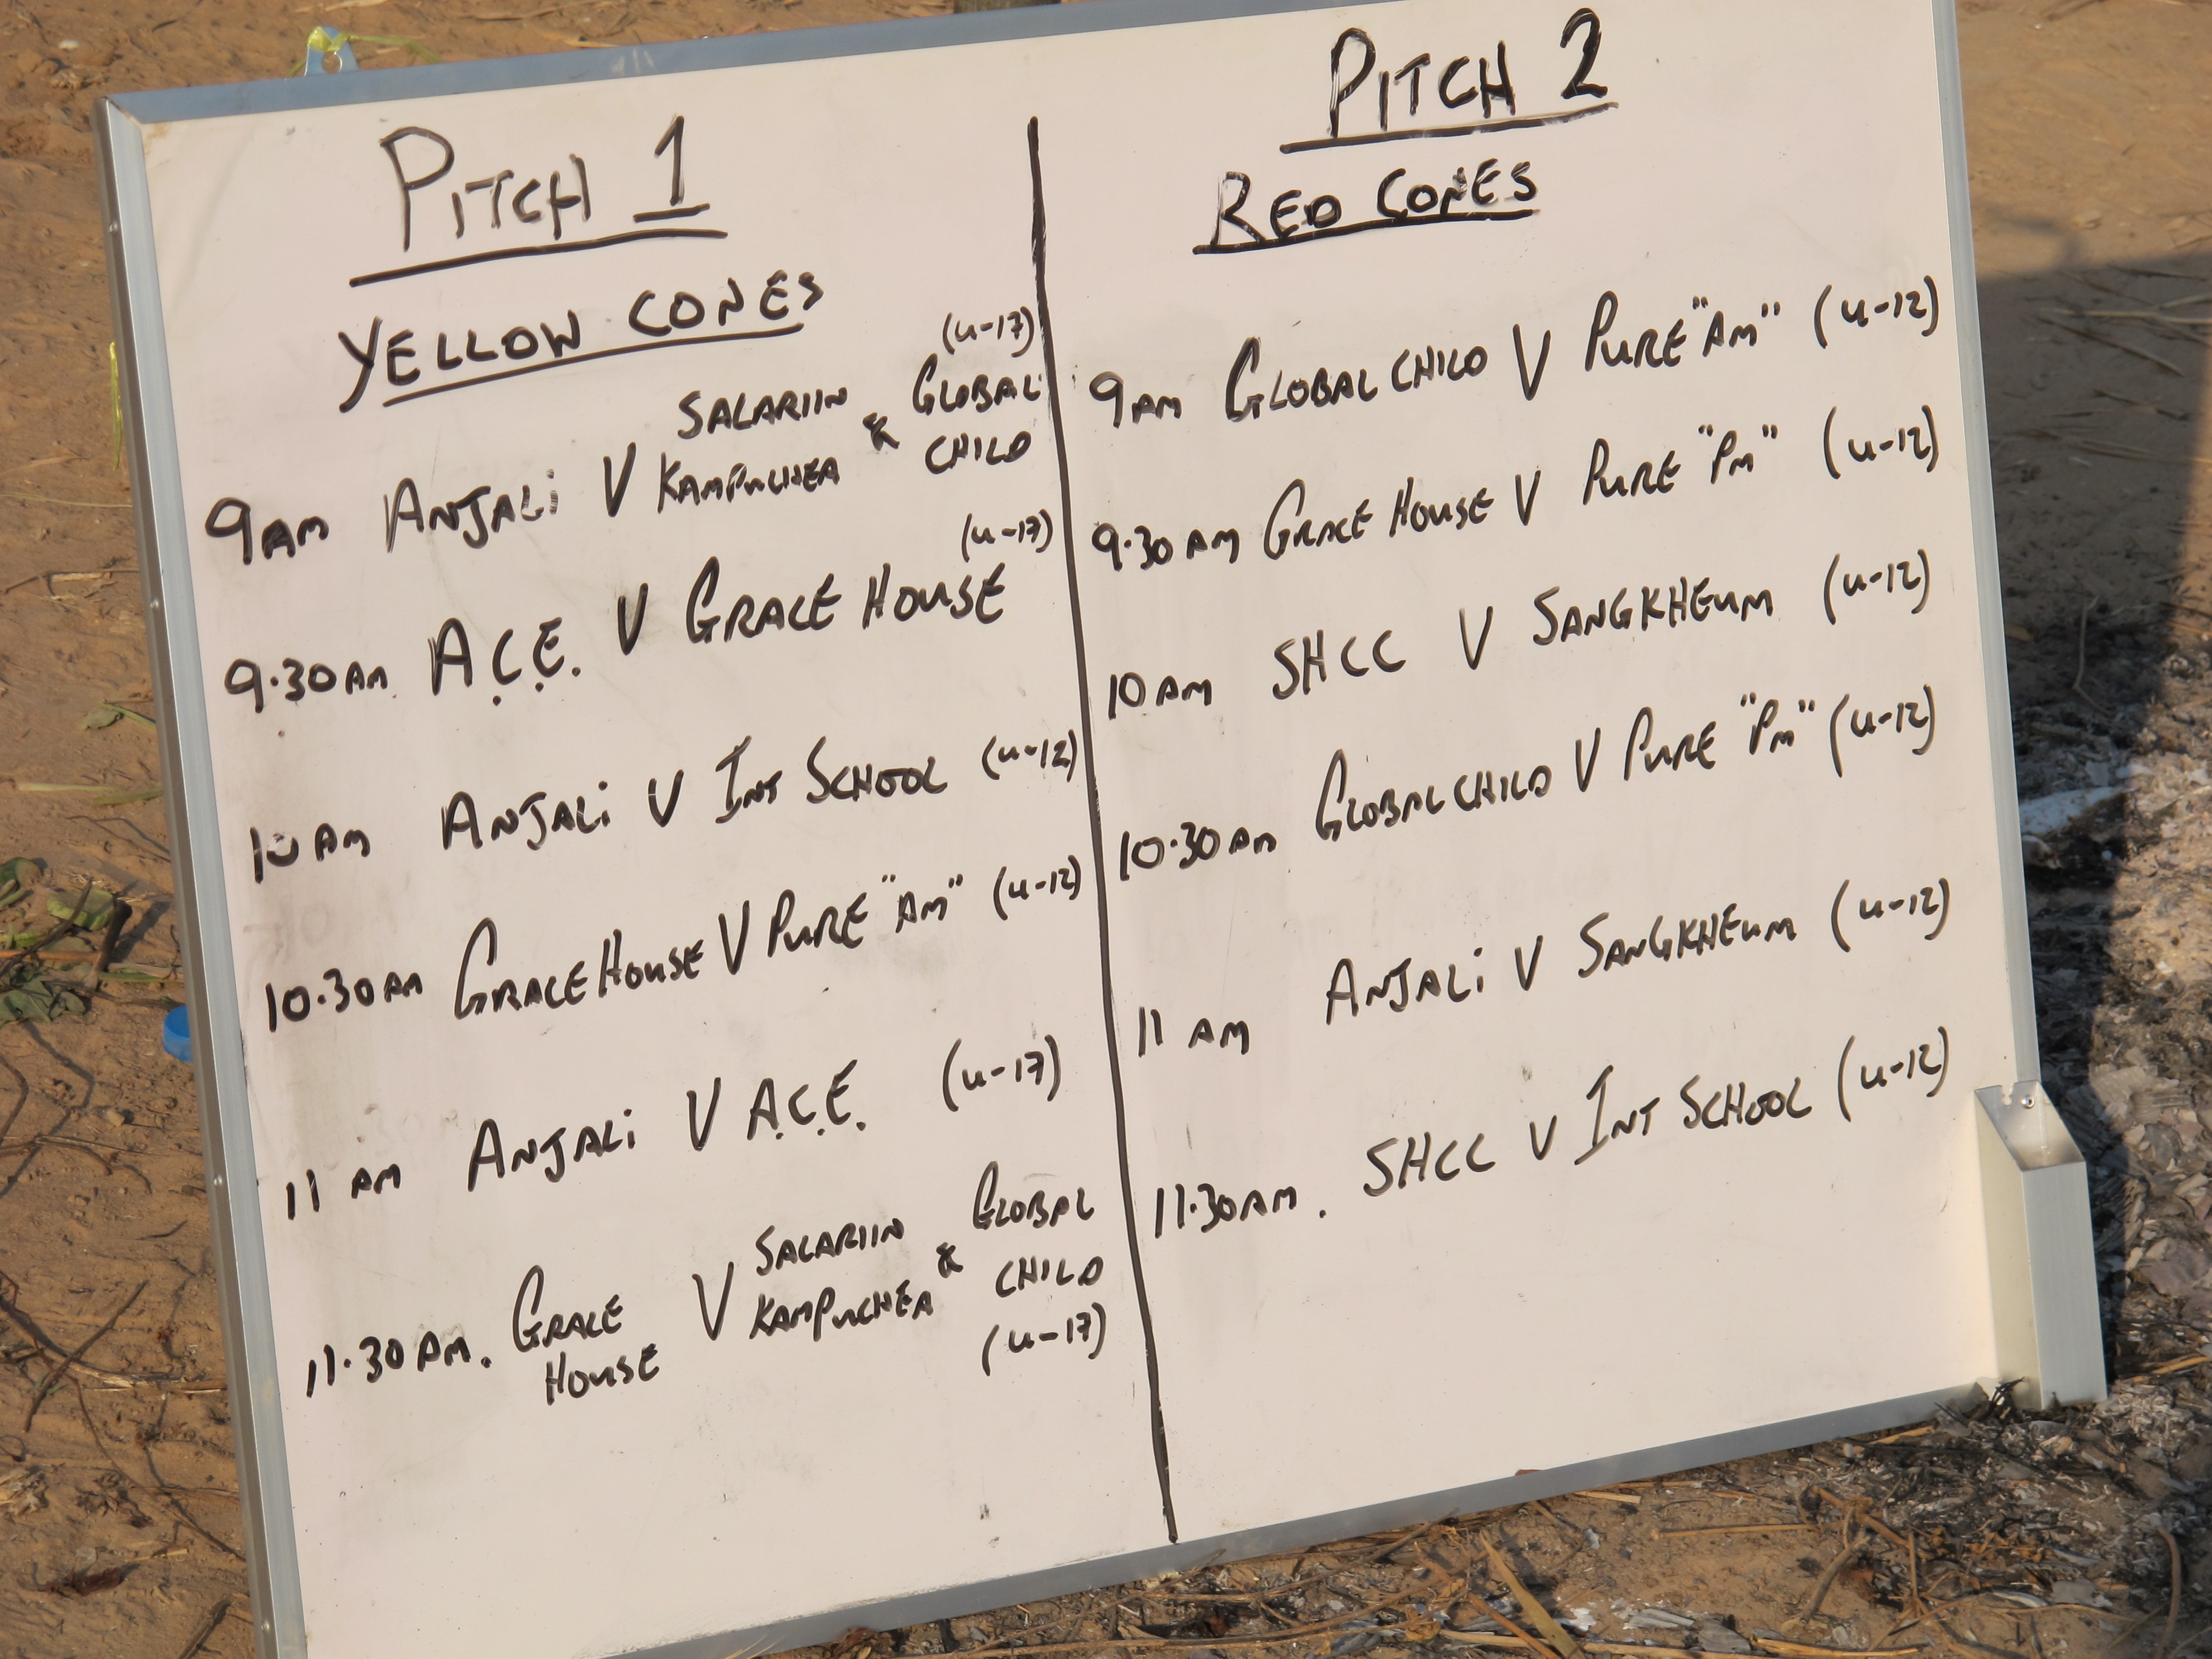 PITCH 1
YELLOW CONES
(u-17)
SALARIIN & GLOBAL
9AM ANJALi V KAMPUCHEA CHILD
(u-17)
9.30AM. A.C.E. V GRACE HOUSE
10AM ANJALi V INT SCHOOL (u-12)
10.30AM GRACE HOUSE V PURE "AM" (u-12)
11 AM ANJALi V A.C.E. (u-17)
SALARIIN & GLOBAL
11.30AM. GRACE HOUSE V KAMPUCHEA CHILD
(u-17)
PITCH 2
RED CONES
9AM GLOBAL CHILD V PURE "AM" (u-12)
9.30AM GRACE HOUSE V PURE "PM" (u-12)
10AM SHCC V SANGKHEUM (u-12)
10.30AM GLOBAL CHILD V PURE "PM" (u-12)
11 AM ANJALi V SANGKHEUM (u-12)
11.30AM. SHCC V INT SCHOOL (u-12)